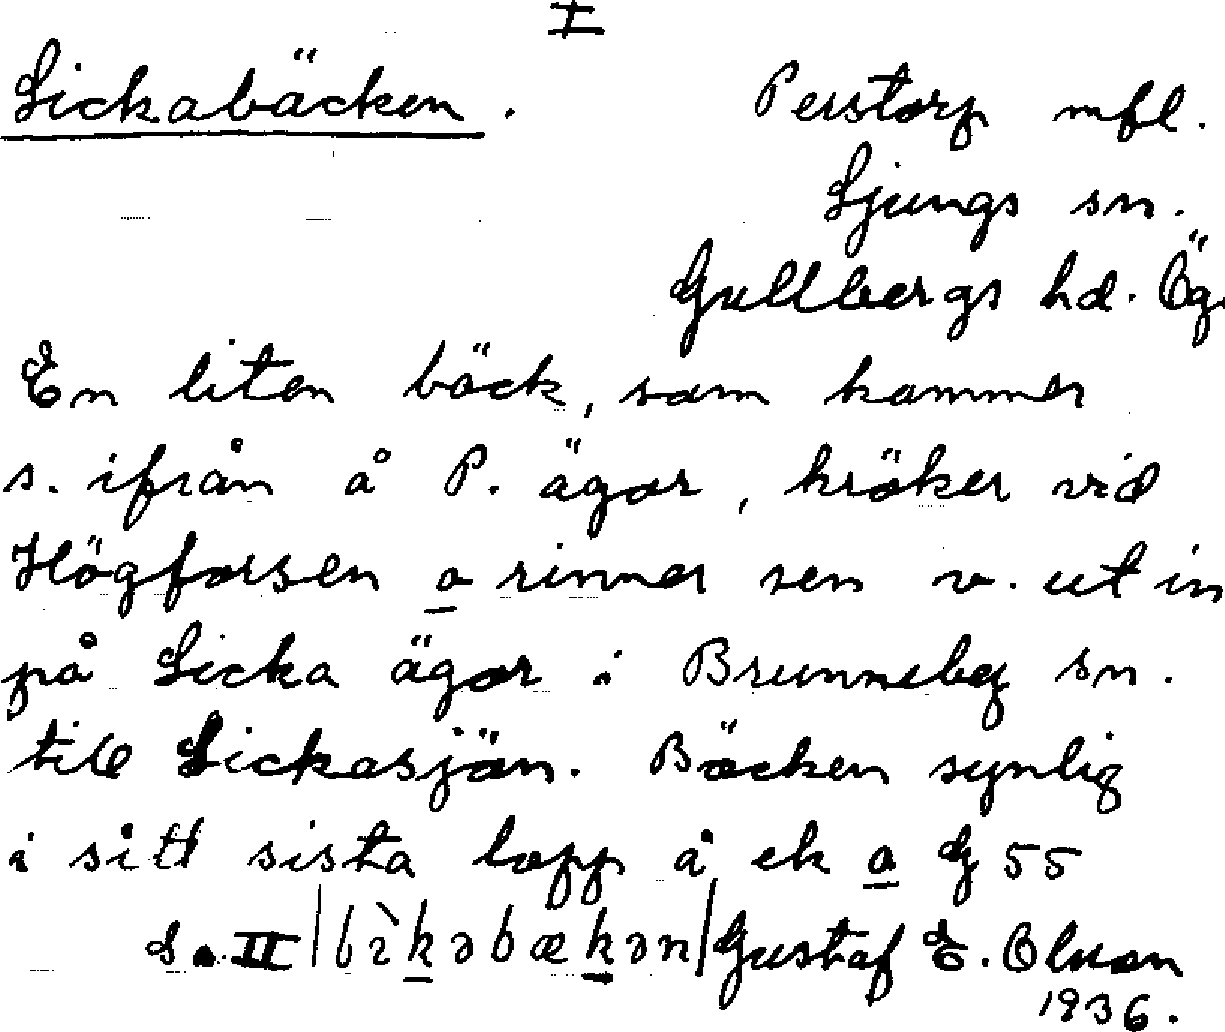 I
Lickabäcken. Perstorp mfl.
Ljungs sn.
Gullbergs hd. Ög.
En liten bäck, som kommer
s. ifrån å P. ägor, kröker vid
Högforsen o rinner sen v. ut in
på Licka ägor i Brunneby sn.
till Lickasjön. Bäcken synlig
i sitt sista lopp å ek o G 55
S. II Gustaf E. Olson
1936.